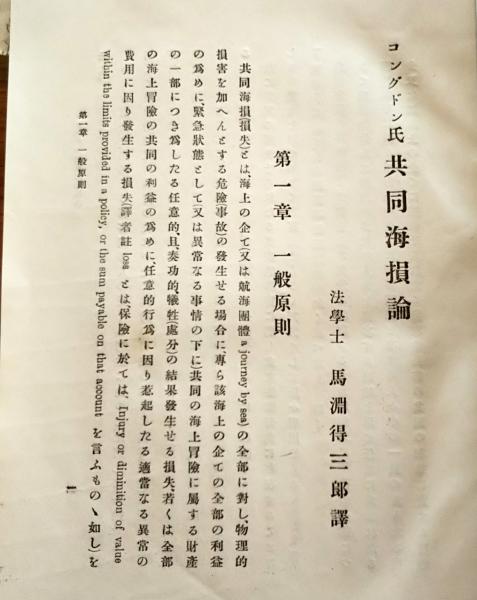 コングドン氏共同海損論
法學士 馬淵得三郎譯
第一章 一般原則
共同海損(損失)とは、海上の企て(又は航海團體 a journey by sea)の全部に對し、物理的
損害を加へんとする危險(事故)の發生せる場合に、專ら該海上の企ての全部の利益
の爲めに、緊急狀態として(又は異常なる事情の下に)共同の海上冒險に屬する財產
の一部につき爲したる任意的、且、奏功的、犧牲(處分)の結果發生せる損失、若くは全部
の海上冒險の共同の利益の爲めに、任意的行爲に因り惹起したる適當なる異常の
費用に因り發生する損失(譯者註 loss とは、保險に於ては、Injury or diminition of value
within the limits provided in a policy, or the sum payable on that account を言ふものゝ如し)を
第一章 一般原則